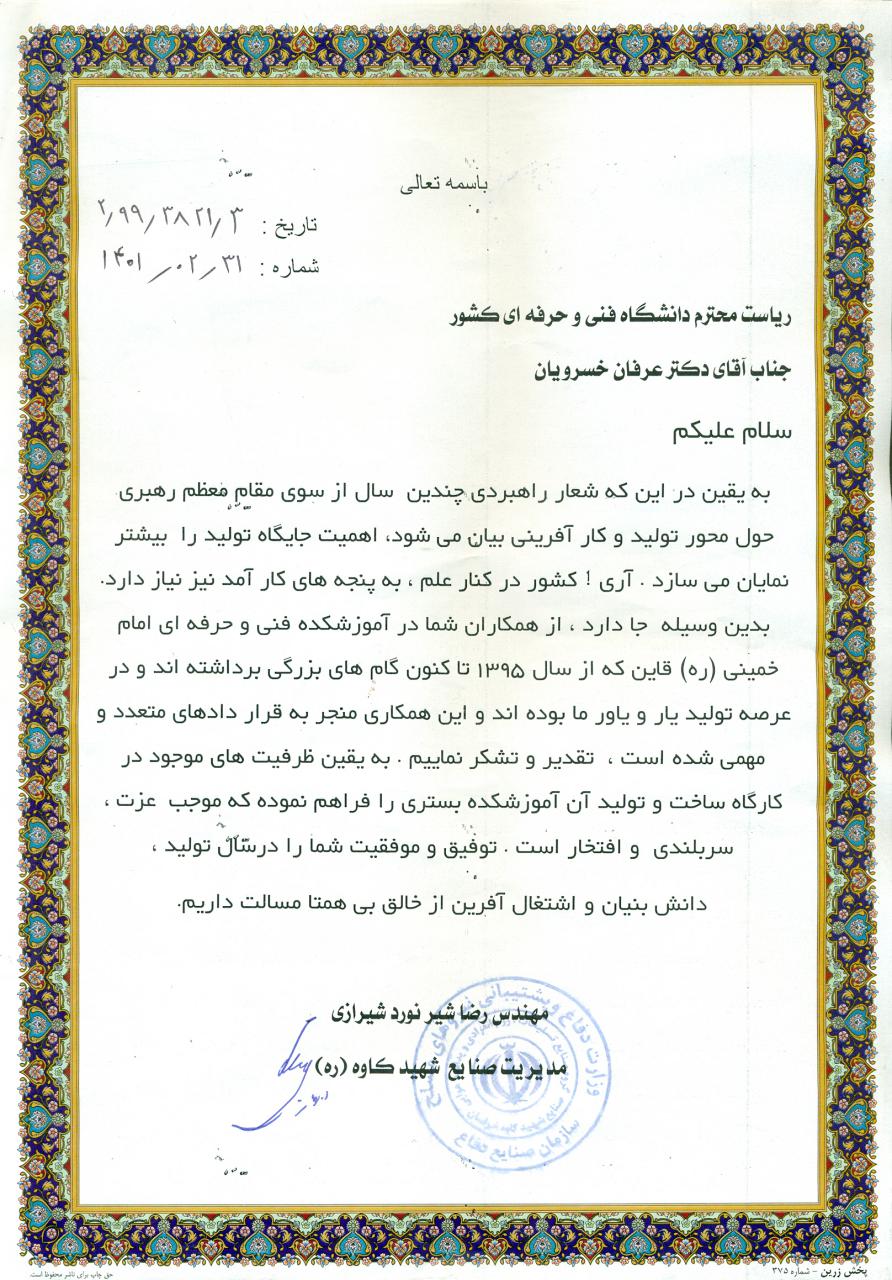 باسمه تعالی
تاریخ : ۲٫۹۹٫۳۸۲۱٫۳
شماره : ۱۴۰۱٫۰۲٫۳۱
ریاست محترم دانشگاه فنی و حرفه ای کشور
جناب آقای دکتر عرفان خسرویان
سلام علیکم
به یقین در این که شعار راهبردی چندین سال از سوی مقام معظم رهبری
حول محور تولید و کار آفرینی بیان می شود، اهمیت جایگاه تولید را بیشتر
نمایان می سازد . آری ! کشور در کنار علم ، به پنجه های کار آمد نیز نیاز دارد.
بدین وسیله جا دارد ، از همکاران شما در آموزشکده فنی و حرفه ای امام
خمینی (ره) قاین که از سال ۱۳۹۵ تا کنون گام های بزرگی برداشته اند و در
عرصه تولید یار و یاور ما بوده اند و این همکاری منجر به قرار دادهای متعدد و
مهمی شده است ، تقدیر و تشکر نماییم . به یقین ظرفیت های موجود در
کارگاه ساخت و تولید آن آموزشکده بستری را فراهم نموده که موجب عزت ،
سربلندی و افتخار است . توفیق و موفقیت شما را درسال تولید ،
دانش بنیان و اشتغال آفرین از خالق بی همتا مسالت داریم.
مهندس رضا شیر نورد شیرازی
مدیریت صنایع شهید کاوه (ره)
وزارت دفاع و پشتیبانی نیروهای مسلح
سازمان صنایع دفاع
پخش زرین - شماره ۳۷۵
حق چاپ برای ناشر محفوظ است.